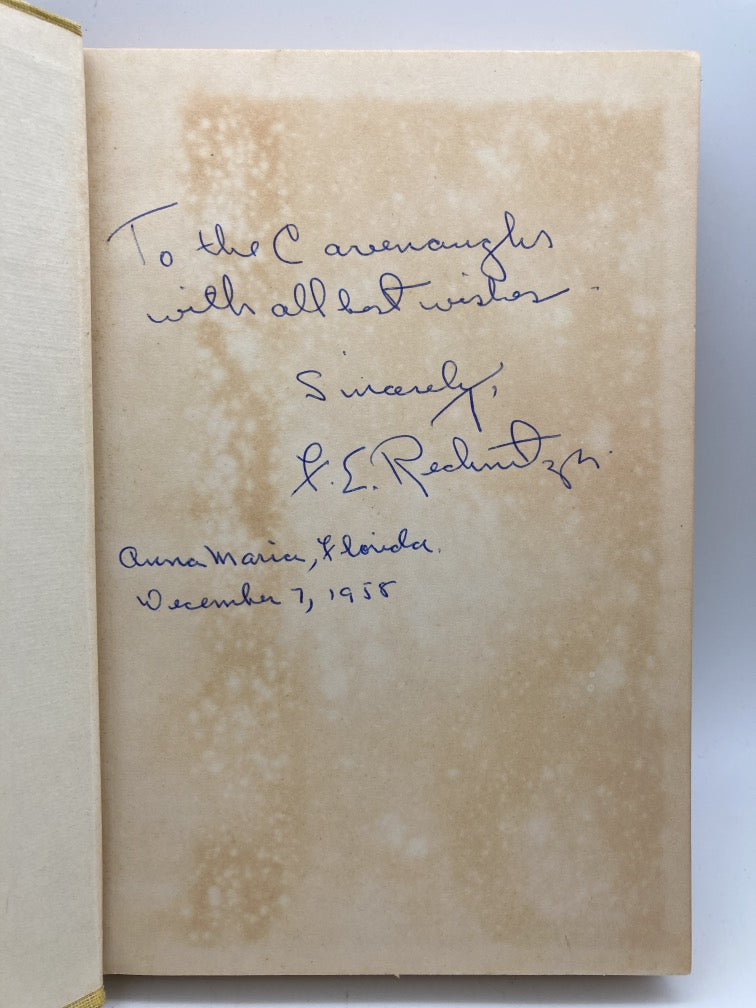 To the Cavenaughs
with all best wishes
Sincerely,
F. E. Rechnitzer
Anna Maria, Florida.
December 7, 1958